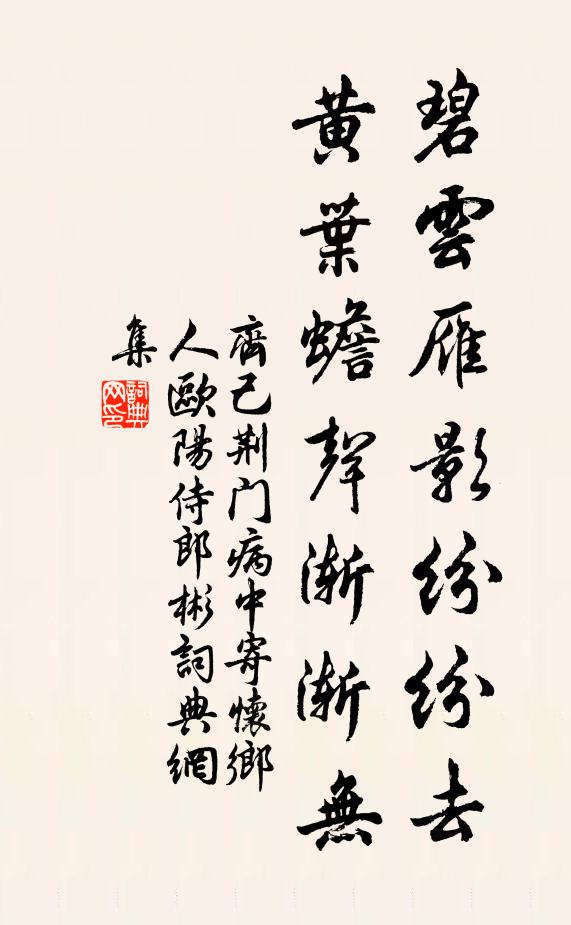 碧雲雁影紛紛去
黃葉蟾聲漸漸無
齊己荆门病中寄懷鄉
人歐陽侍郎彬詞典網
集
詞典
网印